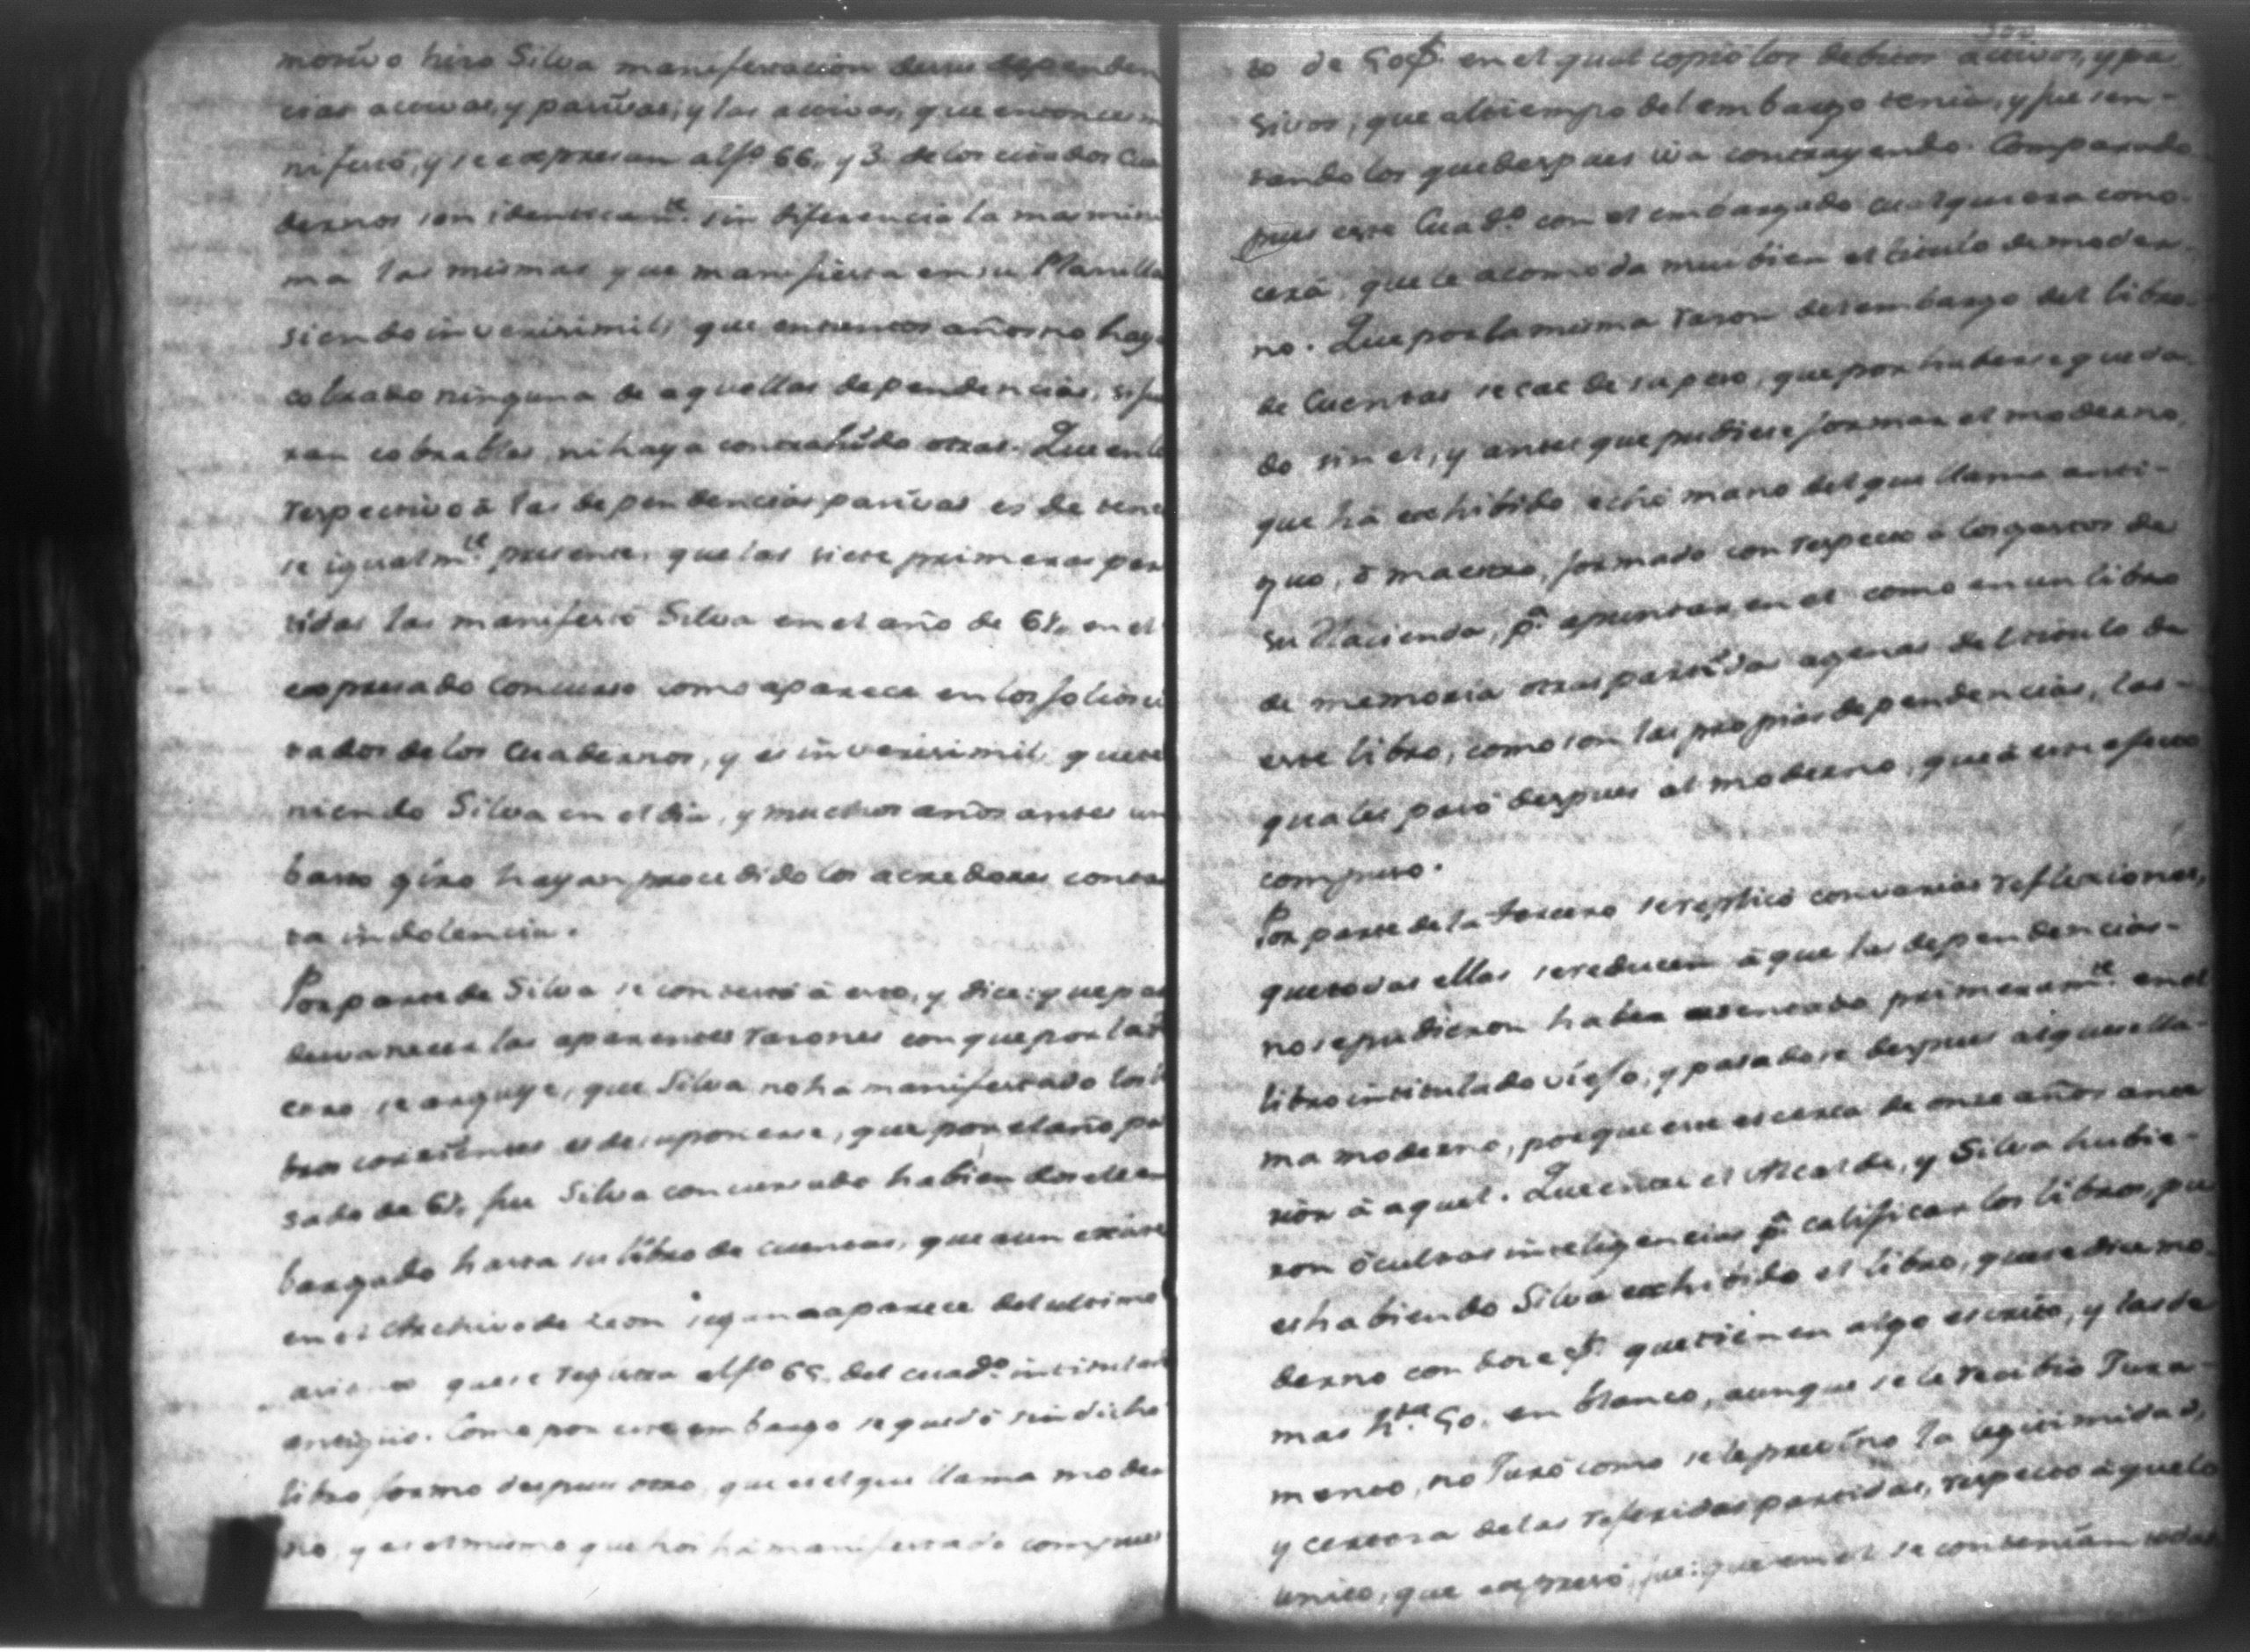 motivo hizo Silva manifestacion de sus dependen
cias activas, y pasivas; y las activas, que entonces m
nifestó, y se expresan al fº 66. y 3. de los citados Cua
dernos son identicam.te sin diferencia la mas mini
ma las mismas que manifiesta en su Planilla
siendo inverisimil, que en tantos años no haya
cobrado ninguna de aquellas dependencias, si fue
ran cobrables, ni haya contrahido otras. Que en lo
respectivo à las dependencias pasivas es de tener
se igualm.te presente, que las siete primeras par
tidas las manifestó Silva en el año de 64. en el
expresado Concurso como aparece en los folios ci
tados de los Cuadernos, y es inverisimil, que te
niendo Silva en el dia, y muchos años antes un
basto giro hayan procedido los acredores con ta
ta indolencia.
Por parte de Silva se contestó à esto, y dice: que pa
desvanecer las aparentes razones con que por la ter
cero se arguye, que Silva no ha manifestado los li
bros corrientes es de suponerse, que por el año pa
sado de 64. fue Silva concursado habiendosele em
bargado hasta su libro de cuentas, que aun existe
en el Archivo de Leon segun aparece del ultimo
asiento que se registra al fº 65. del cuadº intitulado
antiguo. Como por este embargo se quedó sin dicho
libro formó despues otro, que es el que llama moder
no, y es el mismo que hoi há manifestado compues
to de 50 f.s en el qual copió los debitos activos, y pa
sivos, que al tiempo del embargo tenia, y fue sen-
tando los que despues iva contrayendo. Comparado
pues este Cuadº con el embargado cualquiera cono-
cerá, que le acomoda mui bien el titulo de moder-
no. Que por la misma razon del embargo del libro
de Cuentas se cae de su peso, que por haberse queda-
do sin el, y antes que pudiese formar el moderno,
que há exhibido echó mano del que llama anti-
guo, ò maestro, formado con respecto à los gastos de
su Hacienda, p.a apuntar en el como en un libro
de memoria otras partidas agenas del titulo de
este libro, como son las propias dependencias, las-
quales pasó despues al moderno, que à este efecto
compuso.
Por parte de la tercero se replicó con varias reflexiones,
que todas ellas se reducen à que las dependencias-
no se pudieron haber asentado primeram.te en el
libro intitulado viejo, y pasadose despues al que se lla-
ma moderno, porque este es cerca de onze años ante
rior à aquel. Que entre el Alcalde, y Silva hubie-
ron ocultas inteligencias p.a calificar los libros, pu
es habiendo Silva exhibido el libro, que se dice mo-
derno con doze f.s que tienen algo escrito, y las de
mas h.ta 50. en blanco, aunque se le recibió Jura-
mento, no Juró como se le previno la legitimidad,
y certeza de las referidas partidas, respecto à que lo
unico, que expresó, fue: que en el se contenían todas